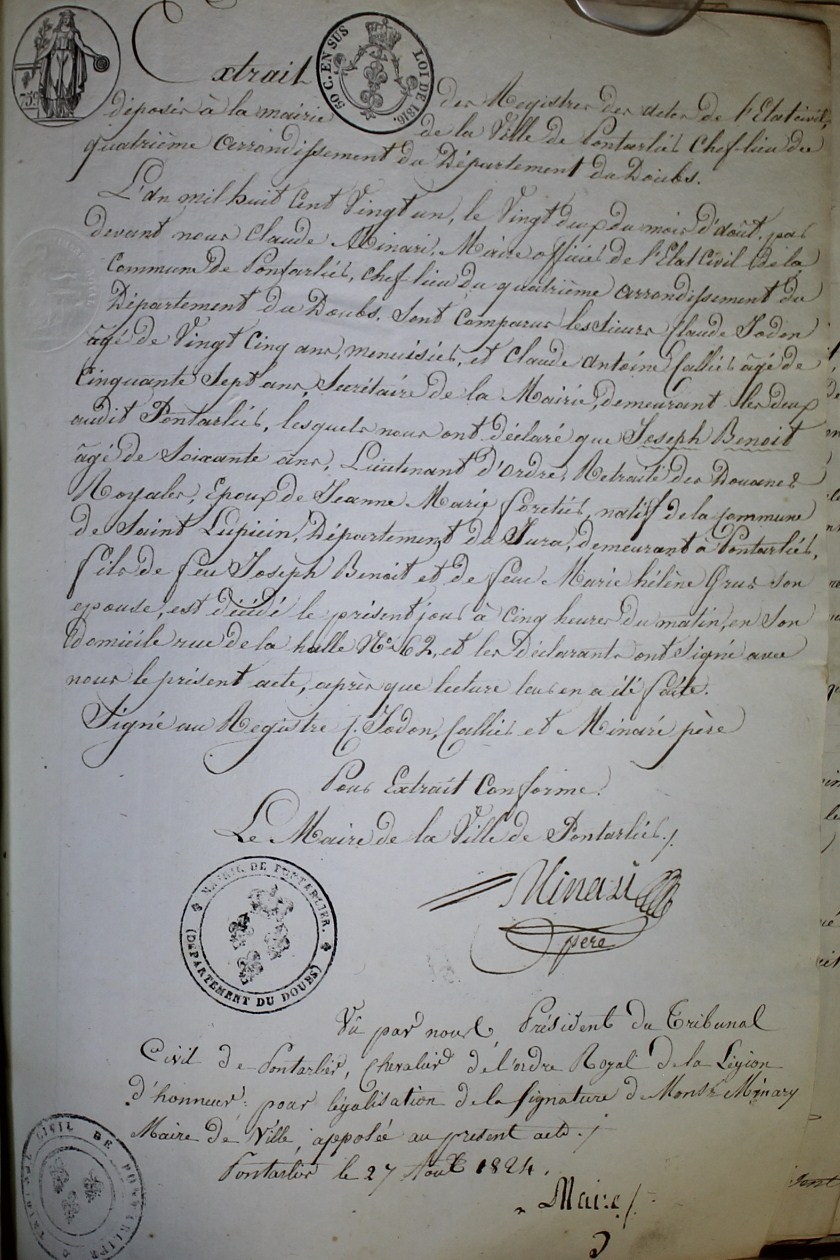 75c
50 C. EN SUS LOI DE 1816
Extrait des Registres des actes de l'Etat civil,
déposés à la mairie de la Ville de Pontarlier Chef-lieu du
quatrième arrondissement du Département du Doubs.
L'An mil huit Cent Vingt un, le Vingt deux du mois d'août, par
devant nous Claude Minari, Maire officier de l'Etat Civil de la
Commune de Pontarlier, chef lieu du quatrième arrondissement du
Département du Doubs. Sont Comparus les Sieurs Claude Jodon
âgé de Vingt Cinq ans, menuisier, et Claude Antoine Callier âgé de
Cinquante Sept ans, Secrétaire de la Mairie, demeurant les deux
audit Pontarlier, lesquels nous ont déclaré que Joseph Benoit
âgé de Soixante ans, Lieutenant d'Ordre, Retraité des Douanes
Royales, Epoux de Jeanne Marie foretier, natif de la Commune
de Saint Lupicin, Département du Jura, demeurant à Pontarlier,
fils de feu Joseph Benoit et de feue Marie hélène Grus son
epouse, est décédé le présent jour à Cinq heures du matin, en Son
domicile rue de la halle No. 62, et les Déclarants ont Signé avec
nous le présent acte, après que lecture leur en a été faite.
Signé au Registre C. Jodon, Callier et Minaré père
Pour Extrait Conforme.
Le Maire de la Ville de Pontarlier./.
Minari
père
MAIRIE DE PONTARLIER.
(DEPARTEMENT DU DOUBS)
Vû par nous Président du Tribunal
Civil de Pontarlier, Chevalier de l'ordre Royal de la Légion
d'honneur pour légalisation de la signature de Monsr. Minary
Maire de Ville, apposée au présent acte./
Pontarlier le 27 Août 1824.
Maire
TRIBUNAL CIVIL DE PONTARLIER